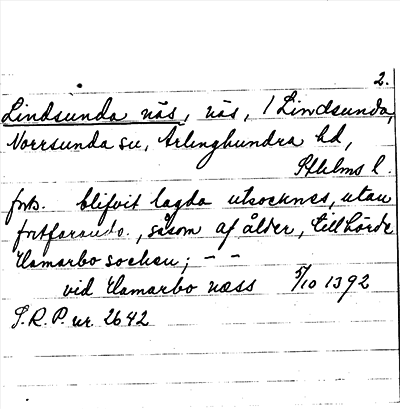 2.
Lindsunda näs, näs, / Lindsunda,
Norrsunda sn, Ärlinghundra hd,
Sthlms l.
forts. blifvit lagda utsocknes, utan
fortfarande, såsom af ålder, tillhörde
Hamarbo socken; - -
vid Hamarbo næss 5/10 1392
S.R.P. nr. 2642